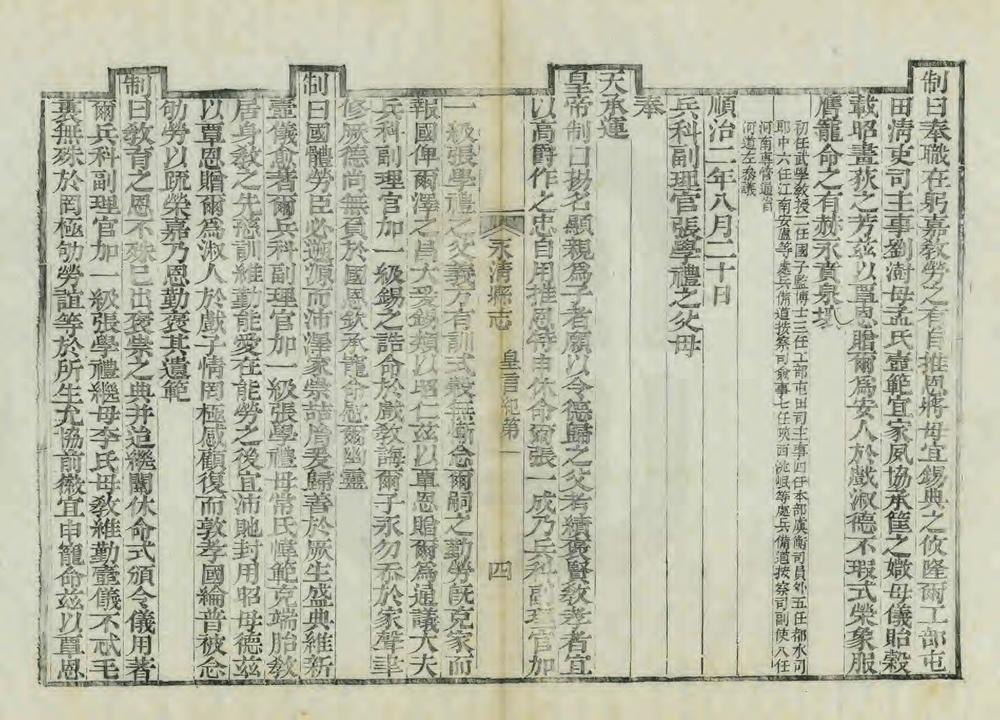 制曰奉職在躬嘉教勞之有自推恩將母宜錫典之攸隆爾工部屯
田淸吏司主事劉澍母孟氏壼範宜家夙協承筐之媺母儀貽穀
載昭畫荻之芳茲以覃恩贈爾爲安人於戲淑德不瑕式榮象服
膺寵命之有赫永賁泉壤
初任武學敎授二任國子監博士三任工部屯田司主事四任本部虞衡司員外五任都水司
郎中六任江南安盧等處兵備道按察司僉事七任陝西洮岷等處兵備道按察司副使八任
河南專管通省
河道左叅議
順治二年八月二十日
兵科副理官張學禮之父母
奉
天承運
皇帝制曰揚名顯親爲子者願以令德歸之父考績褒賢敎孝者宜
以高爵作之忠自用推恩特申休命爾張一成乃兵科副理官加
一級張學禮之父義方有訓式穀無慚念爾嗣之勤勞旣克家而
報國俾爾澤之昌大爰錫類以昭仁茲以覃恩贈爾爲通議大夫
兵科副理官加一級錫之誥命於戲敎誨爾子永勿忝於家聲聿
修厥德尚無負於國恩欽承寵命慰爾幽靈
制曰國體勞臣必遡源而沛澤家崇喆胤爰歸善於厥生盛典維新
壼儀愈著爾兵科副理官加一級張學禮母常氏愇範克端胎敎
居身敎之先慈訓維勤能愛在能勞之後宜沛貤封用昭母德茲
以覃恩贈爾爲淑人於戲子情罔極感顧復而敦孝國綸普被念
劬勞以疏榮嘉乃恩勤褒其遺範
制曰敎育之恩不殊已出褒崇之典并追繼閫休命式頒令儀用著
爾兵科副理官加一級張學禮繼母李氏母敎維勤壼儀不忒毛
裏無殊於罔極劬勞誼等於所生允協前徽宜申寵命茲以覃恩
永淸縣志 皇言紀第一 四